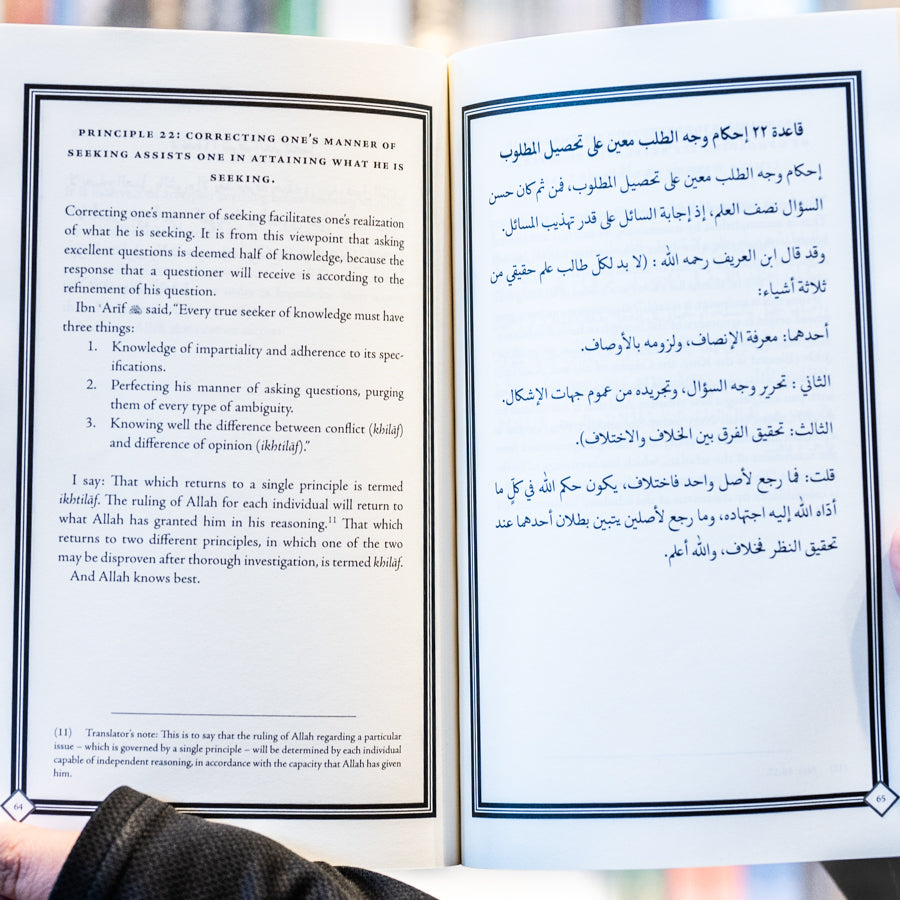 PRINCIPLE 22: CORRECTING ONE'S MANNER OF
SEEKING ASSISTS ONE IN ATTAINING WHAT HE IS
SEEKING.
Correcting one's manner of seeking facilitates one's realization
of what he is seeking. It is from this viewpoint that asking
excellent questions is deemed half of knowledge, because the
response that a questioner will receive is according to the
refinement of his question.
Ibn ʿArif said, “Every true seeker of knowledge must have
three things:
1. Knowledge of impartiality and adherence to its spec-
ifications.
2. Perfecting his manner of asking questions, purging
them of every type of ambiguity.
3. Knowing well the difference between conflict (khilāf)
and difference of opinion (ikhtilāf).”
I say: That which returns to a single principle is termed
ikhtilāf. The ruling of Allah for each individual will return to
what Allah has granted him in his reasoning.11 That which
returns to two different principles, in which one of the two
may be disproven after thorough investigation, is termed khilāf.
And Allah knows best.
(11) Translator's note: This is to say that the ruling of Allah regarding a particular
issue – which is governed by a single principle – will be determined by each individual
capable of independent reasoning, in accordance with the capacity that Allah has given
him.
64
قاعدة ٢٢ إحكام وجه الطلب معين على تحصيل المطلوب
إحكام وجه الطلب معين على تحصيل المطلوب، فمن ثم كان حسن
السؤال نصف العلم، إذ إجابة السائل على قدر تهذيب المسائل.
وقد قال ابن العريف رحمه الله : (لا بد لكلّ طالب علم حقيقي من
ثلاثة أشياء:
أحدهما: معرفة الإنصاف، ولزومه بالأوصاف.
الثاني : تحرير وجه السؤال، وتجريده من عموم جهات الإشكال.
الثالث: تحقيق الفرق بين الخلاف والاختلاف).
قلت: فما رجع لأصل واحد فاختلاف، يكون حكم الله في كلٍّ ما
أدّاه الله إليه اجتهاده، وما رجع لأصلين يتبين بطلان أحدهما عند
تحقيق النظر فخلاف، والله أعلم.
65